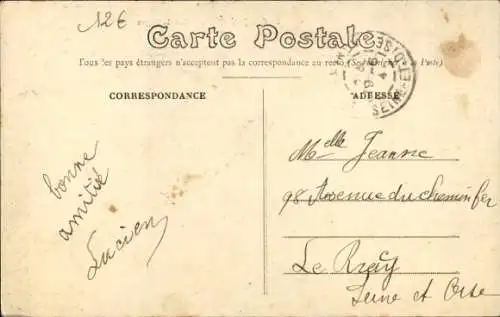 12€
Carte Postale
Tous les pays étrangers n'acceptent pas la correspondance au recto (Se à la Poste)
CORRESPONDANCE
ADRESSE
SEINE-ET-OISE
bonne
amitié
Lucien
Melle Jeanne
98 Avenue du chemin fer
Le
Seine et Oise